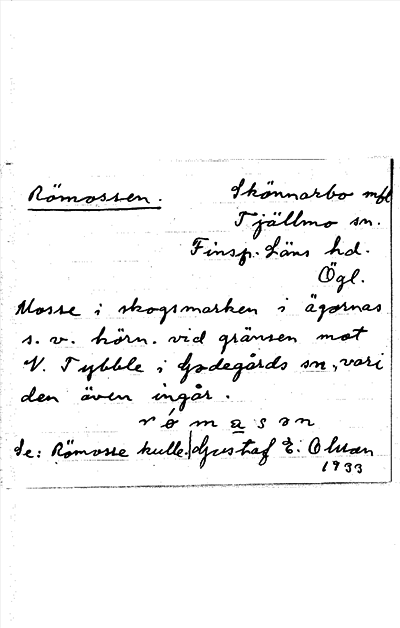 Römossen.
Skönnarbo mfl
Tjällmo sn.
Finsp. Läns hd.
Ögl.
Mosse i skogsmarken i ägornas
s. v. hörn. vid gränsen mot
V. Tybble i Godegårds sn, vari
den även ingår.
römasən
Se: Römosse kulle. Gustaf E. Olsson
1933